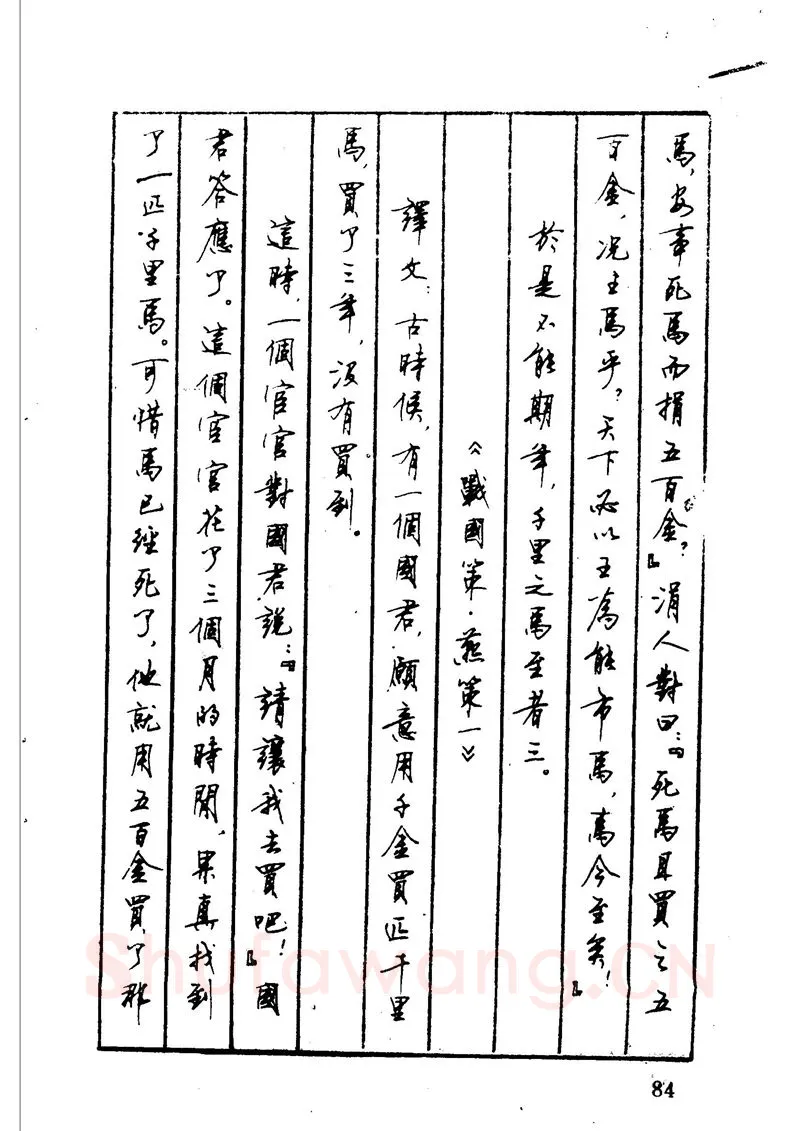 馬，安事死馬而捐五百金？』涓人對曰：『死馬且買之五
百金，况生馬乎？天下必以王為能市馬，馬今至矣！』
於是不能期年，千里之馬至者三。
《戰國策·燕策一》
譯文：古時候，有一個國君，願意用千金買匹千里
馬，買了三年，没有買到。
這時，一個宦官對國君説：『請讓我去買吧！』國
君答應了。這個宦官花了三個月的時間，果真找到
了一匹千里馬。可惜馬已經死了，他就用五百金買了那
84
Shufawang.CN